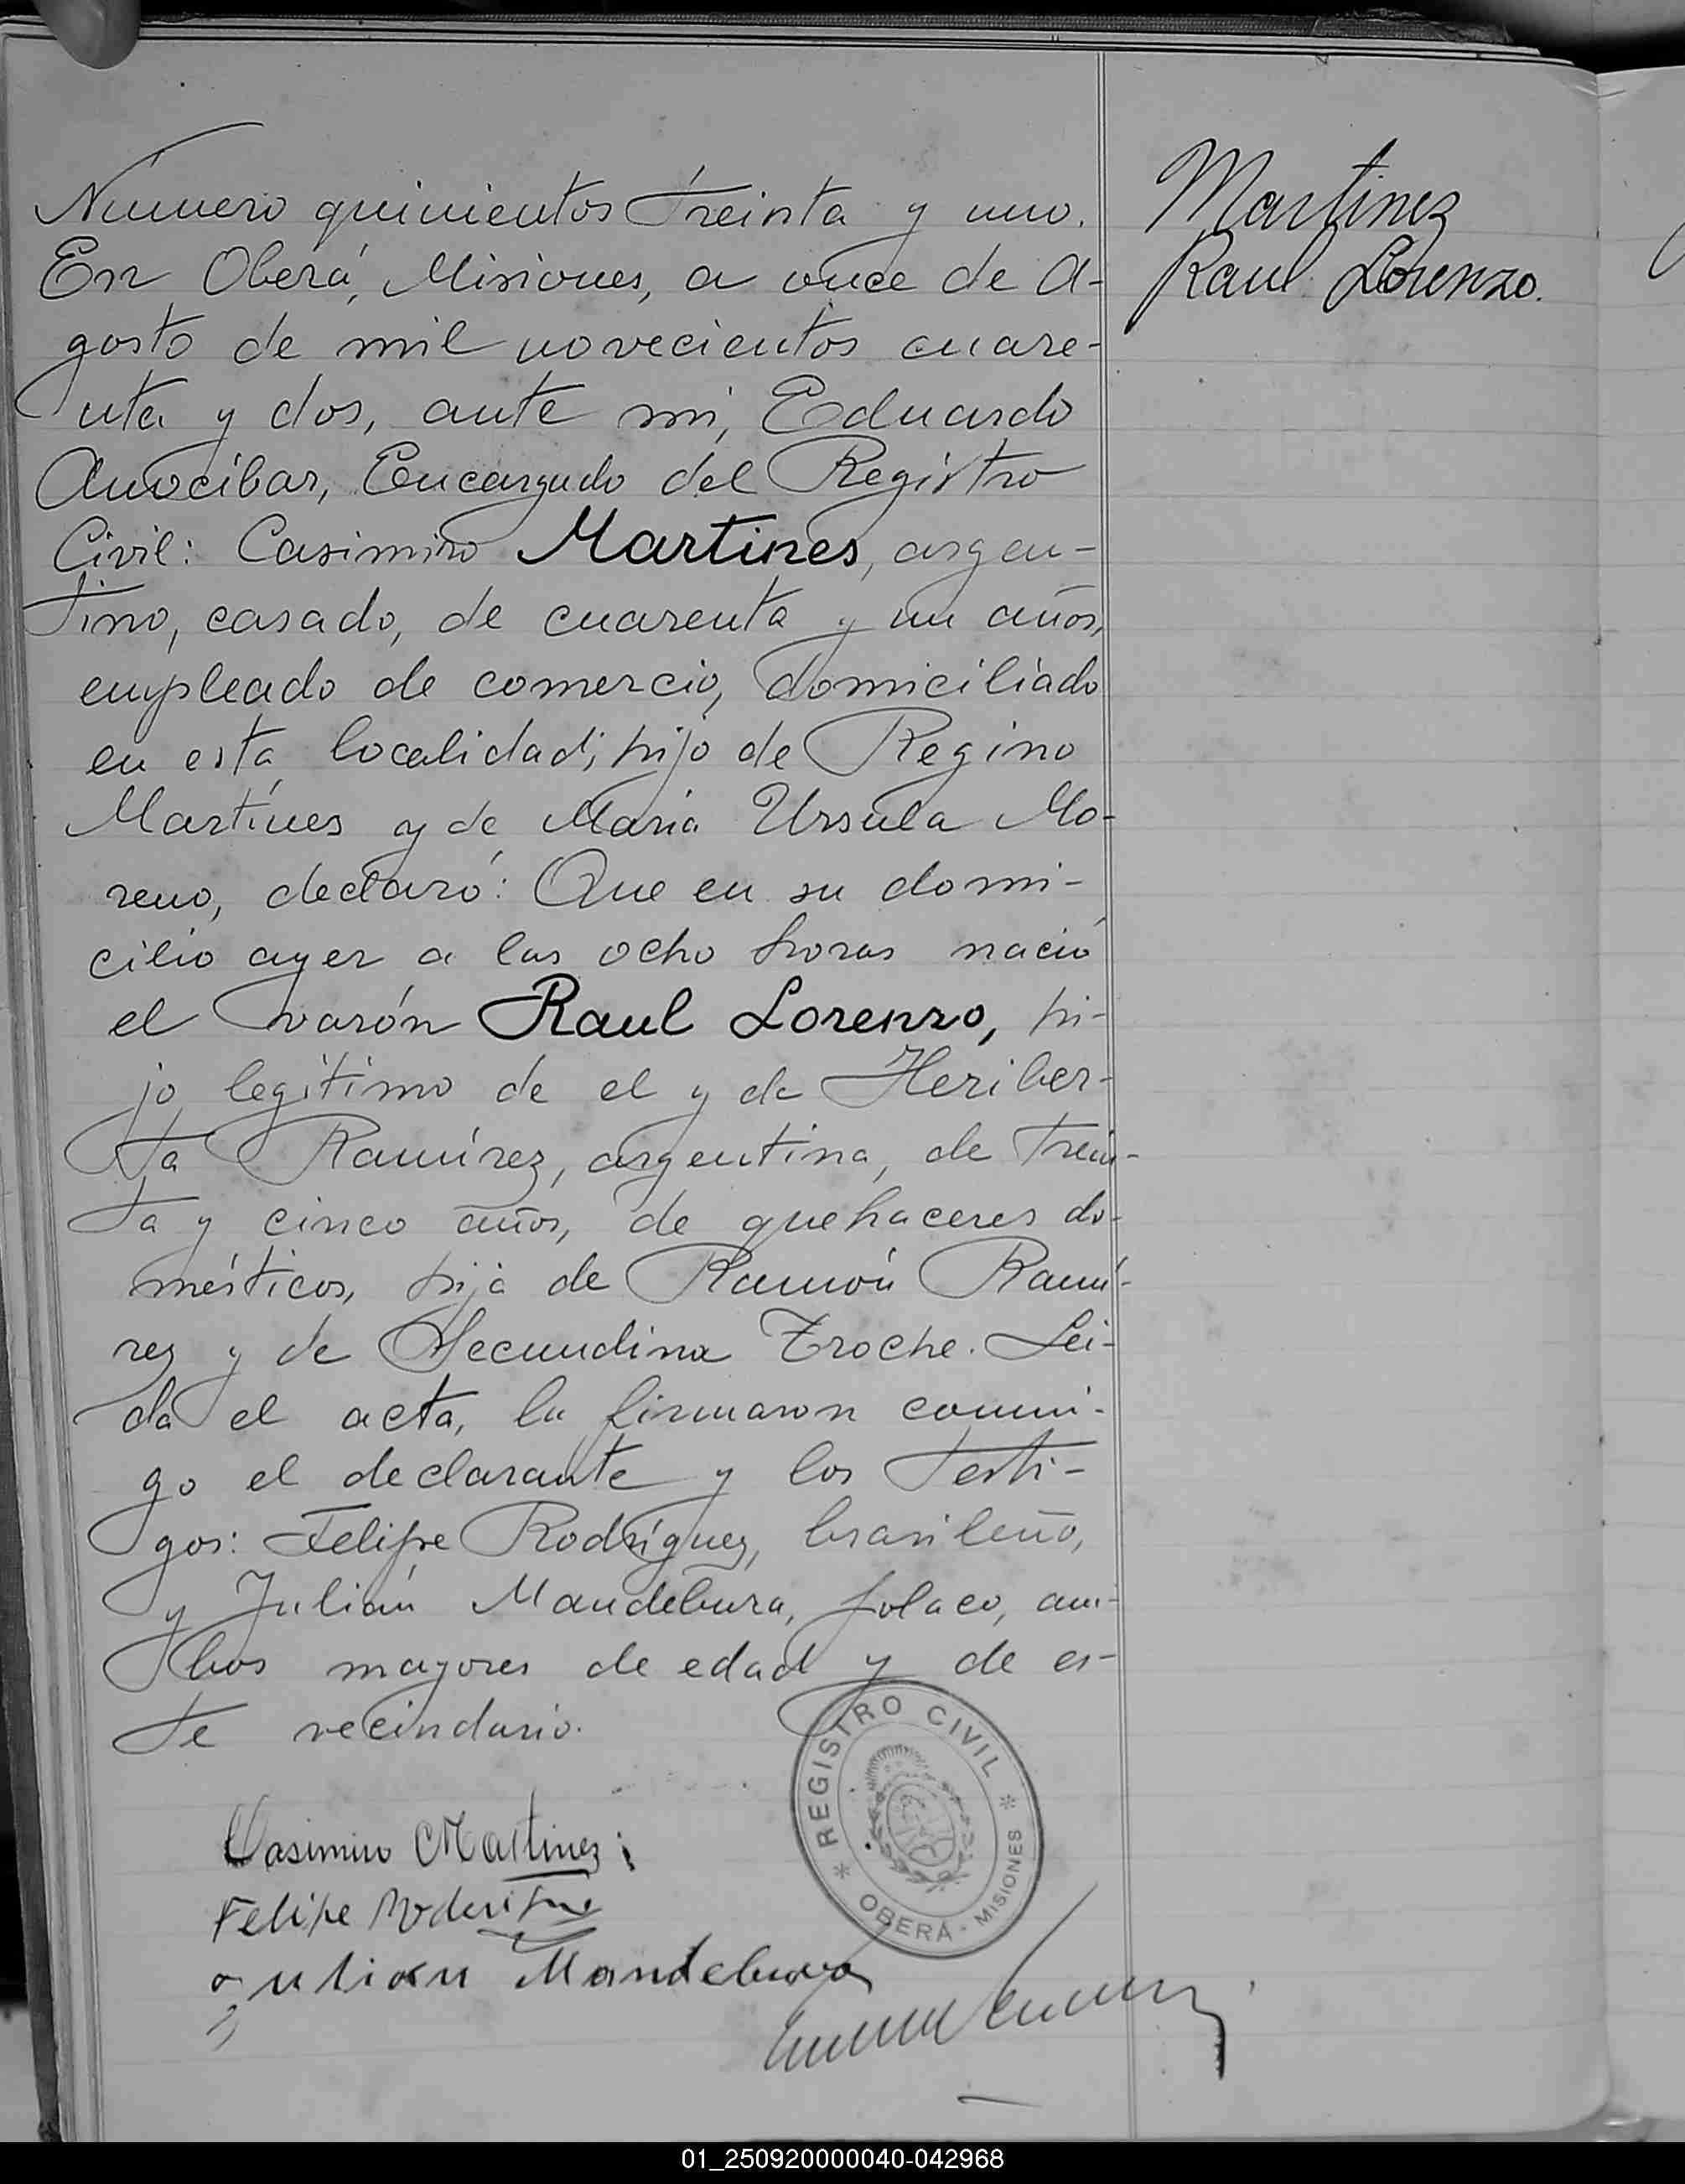 Número quinientos treinta y uno.
En Oberá, Misiones, a once de A-
gosto de mil novecientos cuare-
nta y dos, ante mi, Eduardo
Anocíbar, Encargado del Registro
Civil: Casimiro Martines, argen-
tino, casado, de cuarenta y un años,
empleado de comercio, domiciliado
en esta localidad; hijo de Regino
Martínes y de María Ursula Mo-
reno, declaró: Que en su domi-
cilio ayer a las ocho horas nació
el varón Raul Lorenzo, hi-
jo legítimo de el y de Heriber-
ta Ramírez, argentina, de trein-
ta y cinco años, de quehaceres do-
mésticos, hija de Ramón Ramí-
rez y de Secundina Troche. Lei-
da el acta, la firmaron conmi-
go el declarante y los testi-
gos: Felipe Rodríguez, brasileño,
y Julián Mandebura, polaco, am-
bos mayores de edad y de es-
te vecindario.
Martinez
Raul Lorenzo.
REGISTRO CIVIL
OBERÁ - MISIONES
Casimiro Martinez
Felipe
Julian Mandebura
01_250920000040-042968